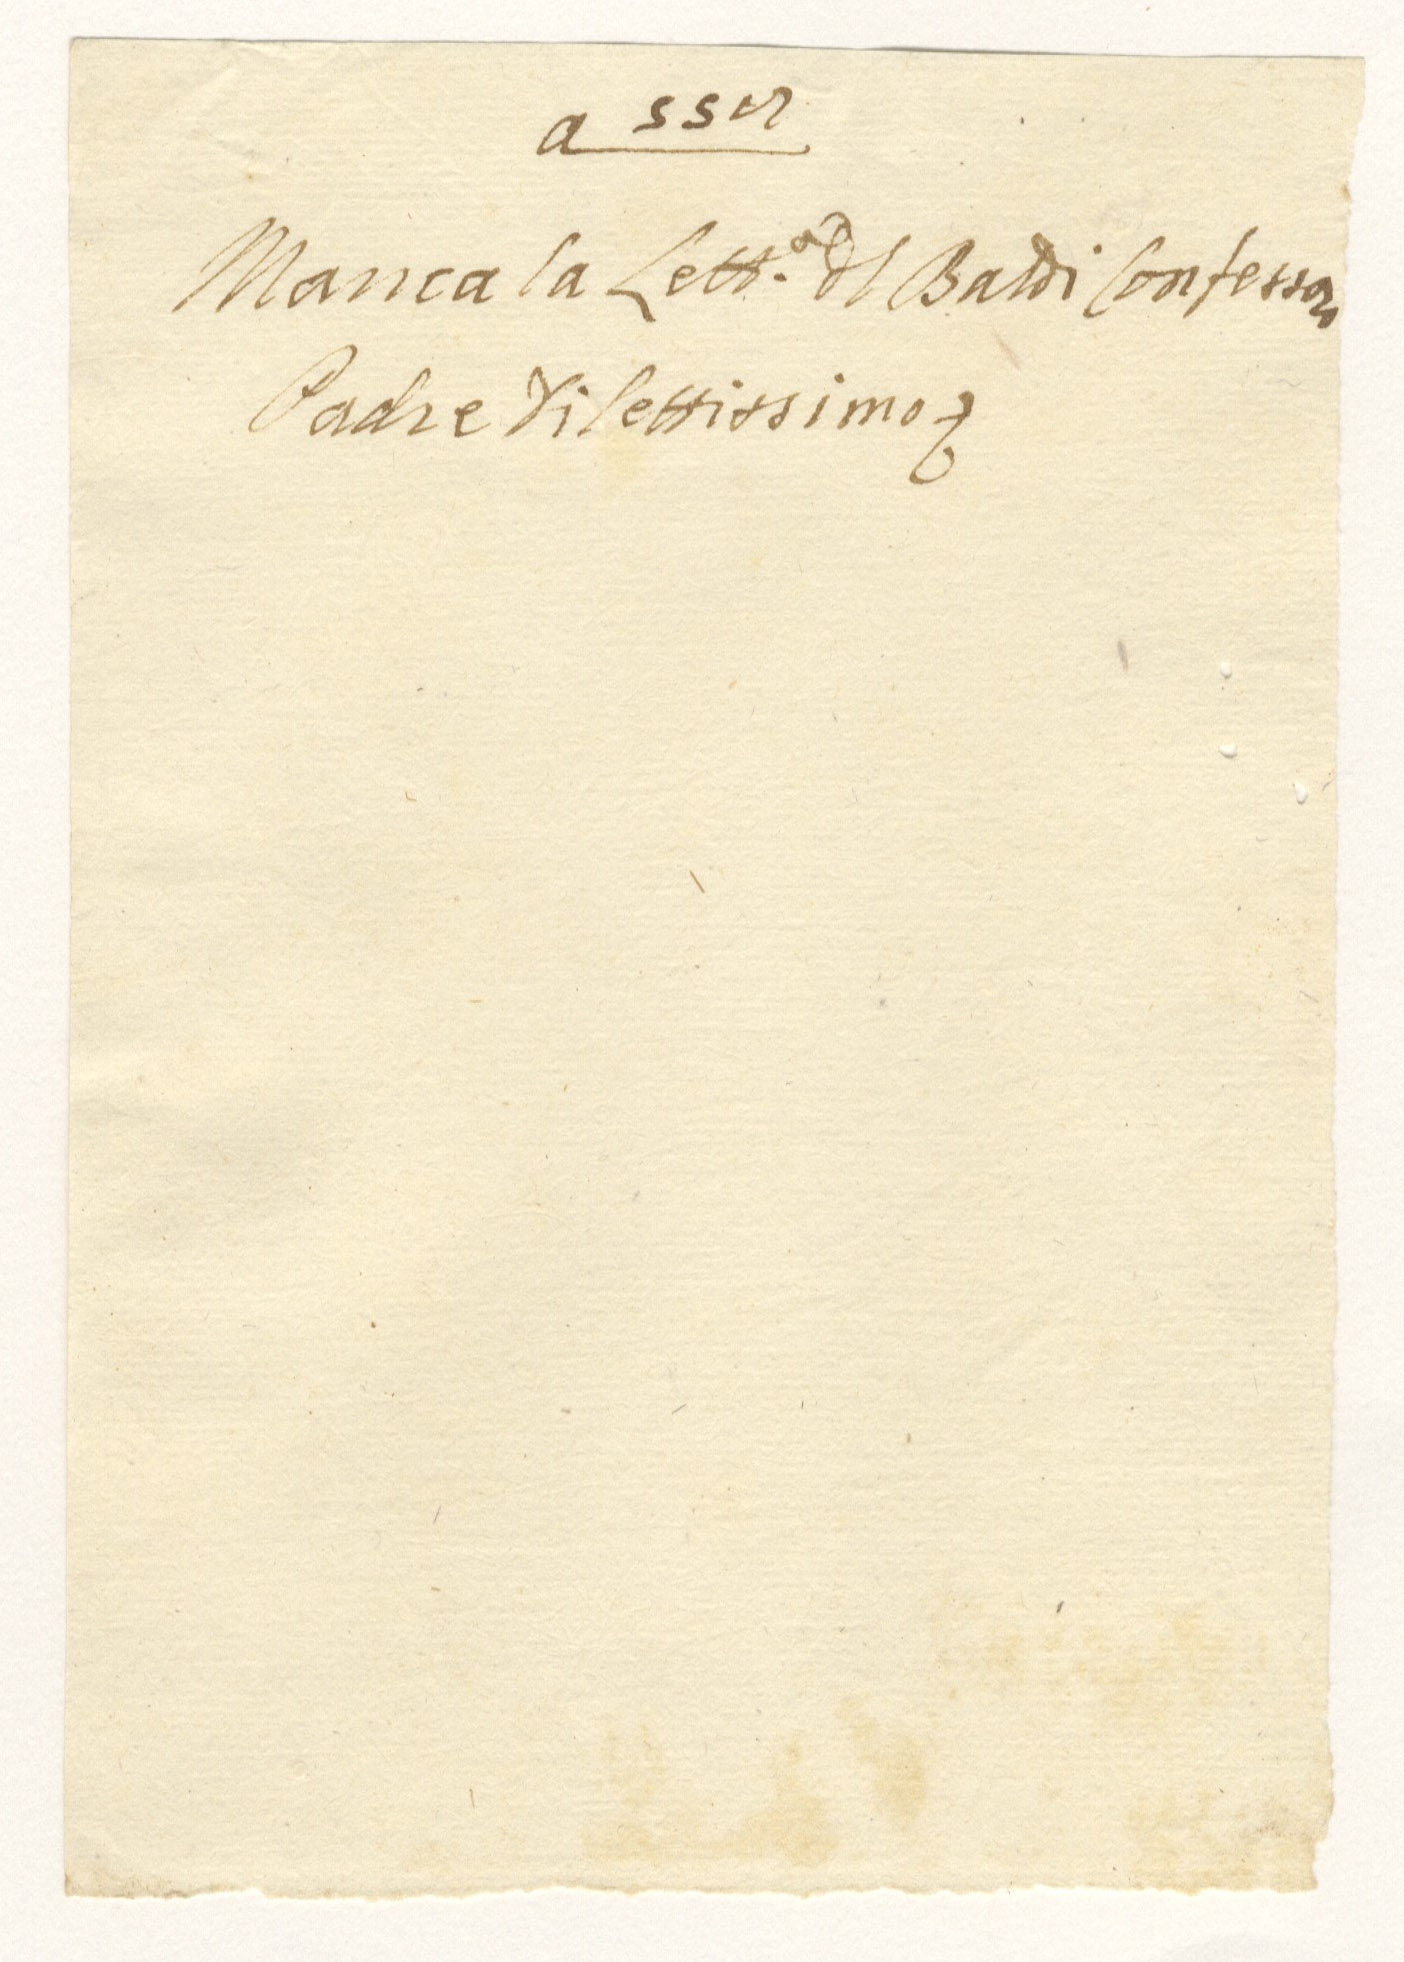 Manca la Lett.ª dl Baldi Confessor
Padre dilettissimo